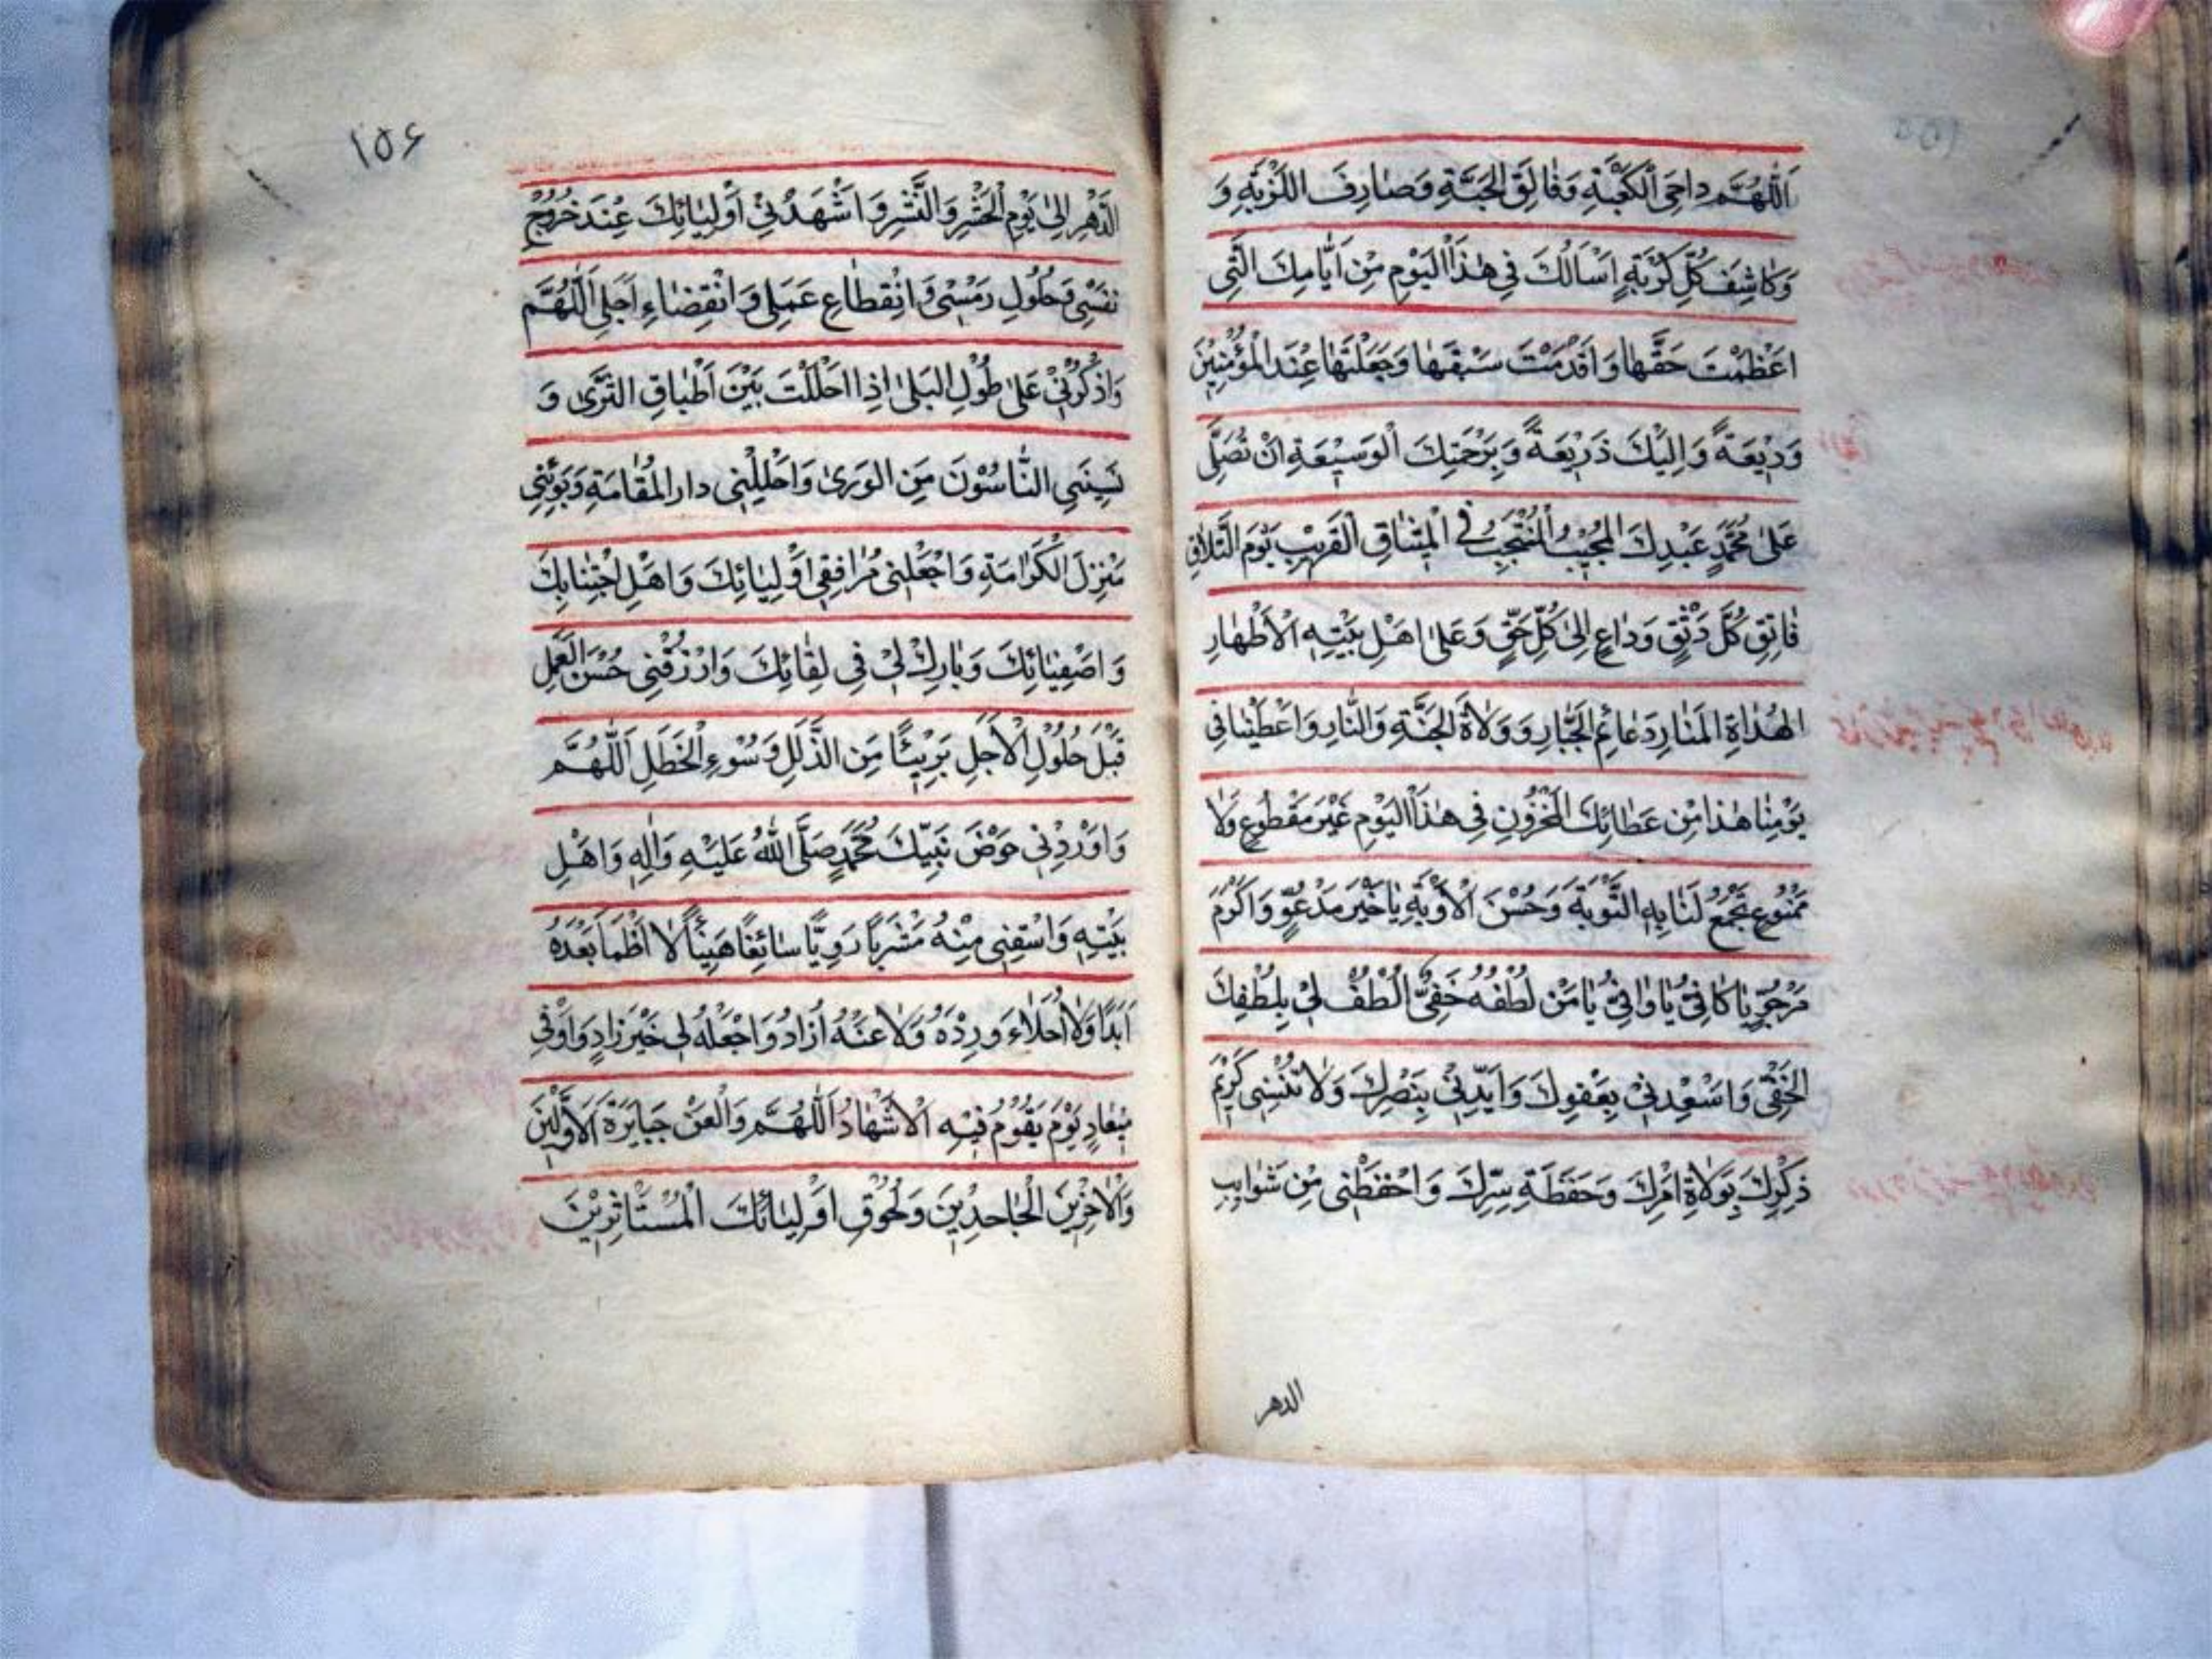 اَللّٰهُمَّ داحِیَ الْكَعْبَةِ وَفَالِقَ الْحَبَّةِ وَصَارِفَ اللَّزْبَةِ وَ
وَكَاشِفَ كُلِّ كُرْبَةٍ اَسْاَلُكَ فِی هٰذَا الْيَوْمِ مِنْ اَيَّامِكَ الَّتِی
اَعْظَمْتَ حَقَّهَا وَ اَقْدَمْتَ سَبْقَهَا وَجَعَلْتَهَا عِنْدَ الْمُؤْمِنِيْنَ
وَدِيْعَةً وَ اِلَيْكَ ذَرِيْعَةً وَ بِرَحْمَتِكَ الْوَسِيْعَةِ اَنْ تُصَلِّی
عَلٰی مُحَمَّدٍ عَبْدِكَ الْمُجِيْبِ الْمُنْتَجَبِ فِی الْمِيْثَاقِ الْقَرِيْبِ يَوْمَ التَّلَاقِ
فَاتِقِ كُلِّ رَتْقٍ وَ دٰاعٍ اِلٰی كُلِّ حَقٍّ وَ عَلٰی اَهْلِ بَيْتِهِ الْاَطْهَارِ
الْهُدَاةِ الْمَنَارِ دَعَائِمِ الْجَبَّارِ وَ وَلَاةِ الْجَنَّةِ وَالنَّارِ وَ اَعْطِنَا فِی
يَوْمِنَا هٰذَا مِنْ عَطَائِكَ الْمَخْزُوْنِ فِی هٰذَا الْيَوْمِ غَيْرَ مَقْطُوْعٍ وَلَا
مَمْنُوْعٍ تَجْمَعُ لَنَا بِهِ التَّوْبَةَ وَ حُسْنَ الْاَوْبَةِ يَا خَيْرَ مَدْعُوٍّ وَ اَكْرَمَ
مَرْجُوٍّ يَا كَافِیُ يَا وَافِیُ يَا مَنْ لُطْفُهُ خَفِیٌّ الْطُفْ لِی بِلُطْفِكَ
الْخَفِیِّ وَ اَسْعِدْنِی بِعَفْوِكَ وَ اَيِّدْنِی بِنَصْرِكَ وَلَا تُنْسِنِی كَرِيْمَ
ذِكْرِكَ بِوَلَاةِ اَمْرِكَ وَحَفَظَةِ سِرِّكَ وَ احْفَظْنِی مِنْ شَوَايِبِ
الدهر
١٥۶
الدَّهْرِ اِلٰی يَوْمِ الْحَشْرِ وَ النَّشْرِ وَ اَشْهِدْنِی اَوْلِيَائِكَ عِنْدَ خُرُوْجِ
نَفْسِی وَحُلُولِ رَمْسِی وَ انْقِطَاعِ عَمَلِی وَ انْقِضَاءِ اَجَلِی اَللّٰهُمَّ
وَ اذْكُرْنِی عَلٰی طُوْلِ الْبَلٰی اِذَا احْلَلْتُ بَيْنَ اَطْبَاقِ الثَّرٰی وَ
نَسِيَنِی النَّاسُوْنَ مِنَ الْوَرٰی وَ احْلِلْنِی دار الْمُقَامَةِ وَ بَوِّئْنِی
مَنْزِلَ الْكَرَامَةِ وَ اجْعَلْنِی مُرَافِقِی اَوْلِيَائِكَ وَ اَهْلِ اجْتِبَابِكَ
وَ اصْفِيَائِكَ وَ بَارِكْ لِی فِی لِقَائِكَ وَ ارْزُقْنِی حُسْنَ الْعَمَلِ
قَبْلَ حُلُوْلِ الْاَجَلِ بَرِيْئًا مِنَ الذَّلَلِ وَ سُوْءِ الْخَطَلِ اَللّٰهُمَّ
وَ اَوْرِدْنِی حَوْضَ نَبِيِّكَ مُحَمَّدٍ صَلَّی اللّٰهُ عَلَيْهِ وَ اٰلِهِ وَ اَهْلِ
بَيْتِهِ وَ اسْقِنِی مِنْهُ مَشْرَبًا رَوِيًّا سَائِغًا هَنِيئًا لَا اَظْمَأُ بَعْدَهُ
اَبَدًا وَلَا اُحَلَاءُ وِرْدَهُ وَلَا عَنْهُ اُزَادُ وَ اجْعَلْهُ لِی خَيْرَ زَادٍ وَ اَوْفٰی
مِيْعَادٍ يَوْمَ يَقُوْمُ فِيْهِ الْاَشْهَادُ اَللّٰهُمَّ وَ الْعَنْ جَبَابِرَةَ الْاَوَّلِيْنَ
وَ الْاٰخِرِيْنَ الْجَاحِدِيْنَ وَ لِحُقُوْقِ اَوْلِيَائِكَ الْمُسْتَاْثِرِيْنَ